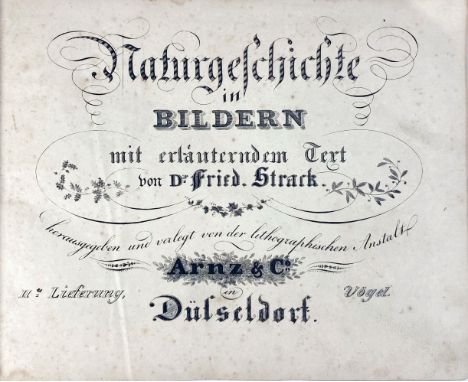 Naturgeschichte
in
BILDERN
mit erläuterndem Text
von Dr Fried. Strack.
herausgegeben und verlegt von der lithographischen Anstalt
Arnz & Co
IIte Lieferung, in Vögel.
Düsseldorf.